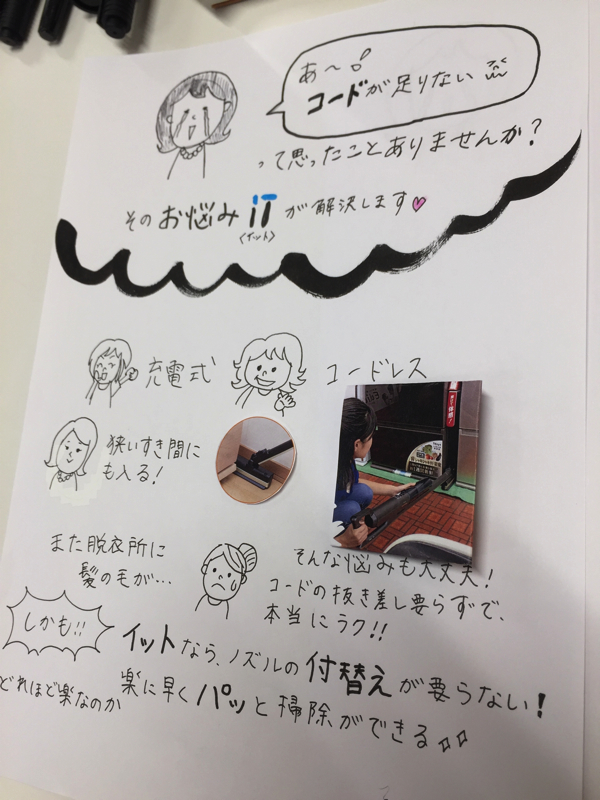 あ〜
コードが足りない
って思ったことありませんか?
そのお悩み iT が解決します♡
〈イット〉
充電式
コードレス
狭いすき間に
も入る!
また脱衣所に
髪の毛が…
そんな悩みも大丈夫!
コードの抜き差し要らずで、
本当にラク!!
しかも!!
イットなら、ノズルの付替えが要らない!
どれほど楽なのか
楽に早くパッと掃除ができる♪♪